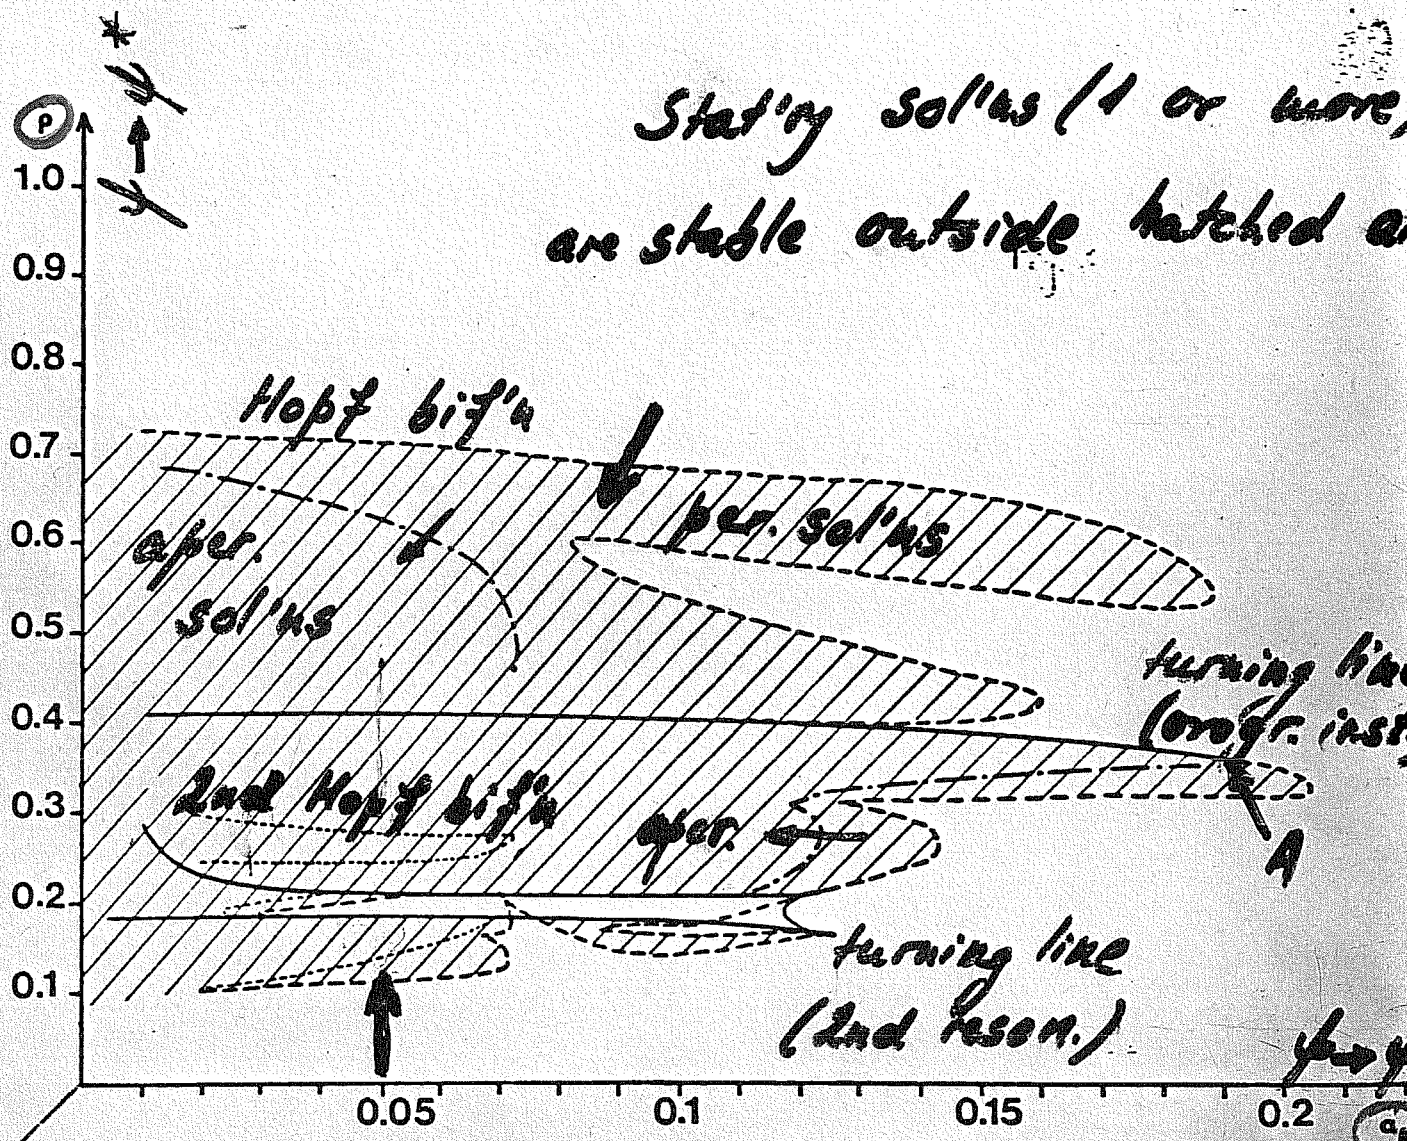 *
ψ
ρ
ψ
Stat'ry sol'ns (1 or more,
are stable outside hatched
1.0
0.9
0.8
0.7
0.6
0.5
0.4
0.3
0.2
0.1
Hopf bif'n
per. sol'ns
aper.
sol'ns
turning line
(orogr. inst
2nd Hopf bif'n
aper.
A
turning line
(2nd reson.)
0.05
0.1
0.15
0.2